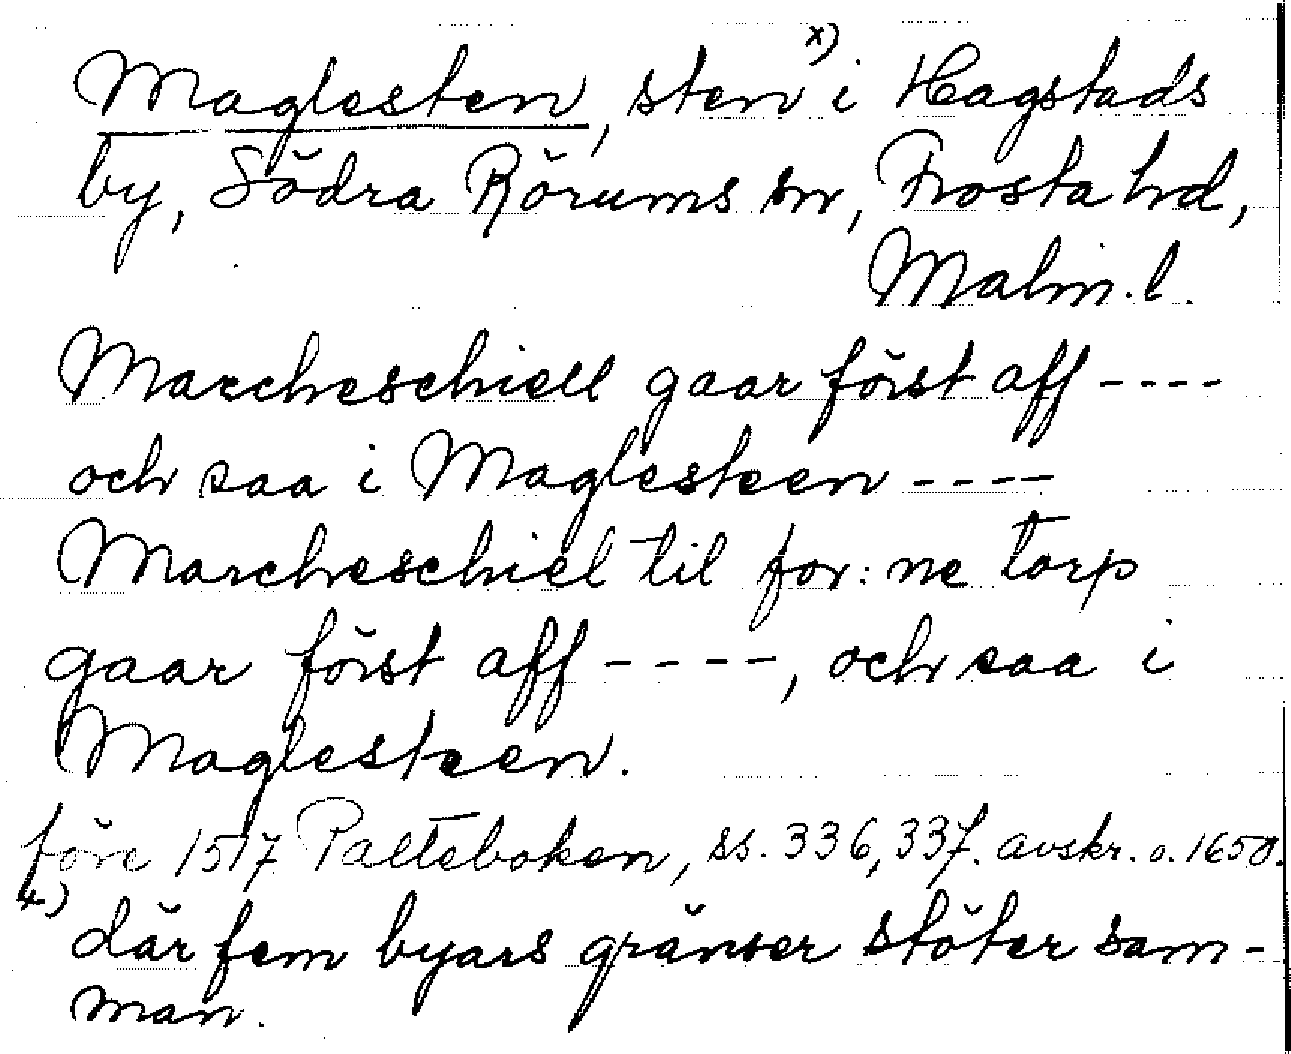 Maglesten, sten x) i Hagstads
by, Södra Rörums sn, Frosta hd,
Malm. l.
Marcheschiell gaar först aff ----
och saa i Maglesteen ----
Marcheschiel til for: ne Torp
gaar först aff ----, och saa i
Maglesteen.
före 1517 Palteboken, ss. 336, 337. avskr. o. 1650.
x) där fem byars gränser stöter sam-
man.